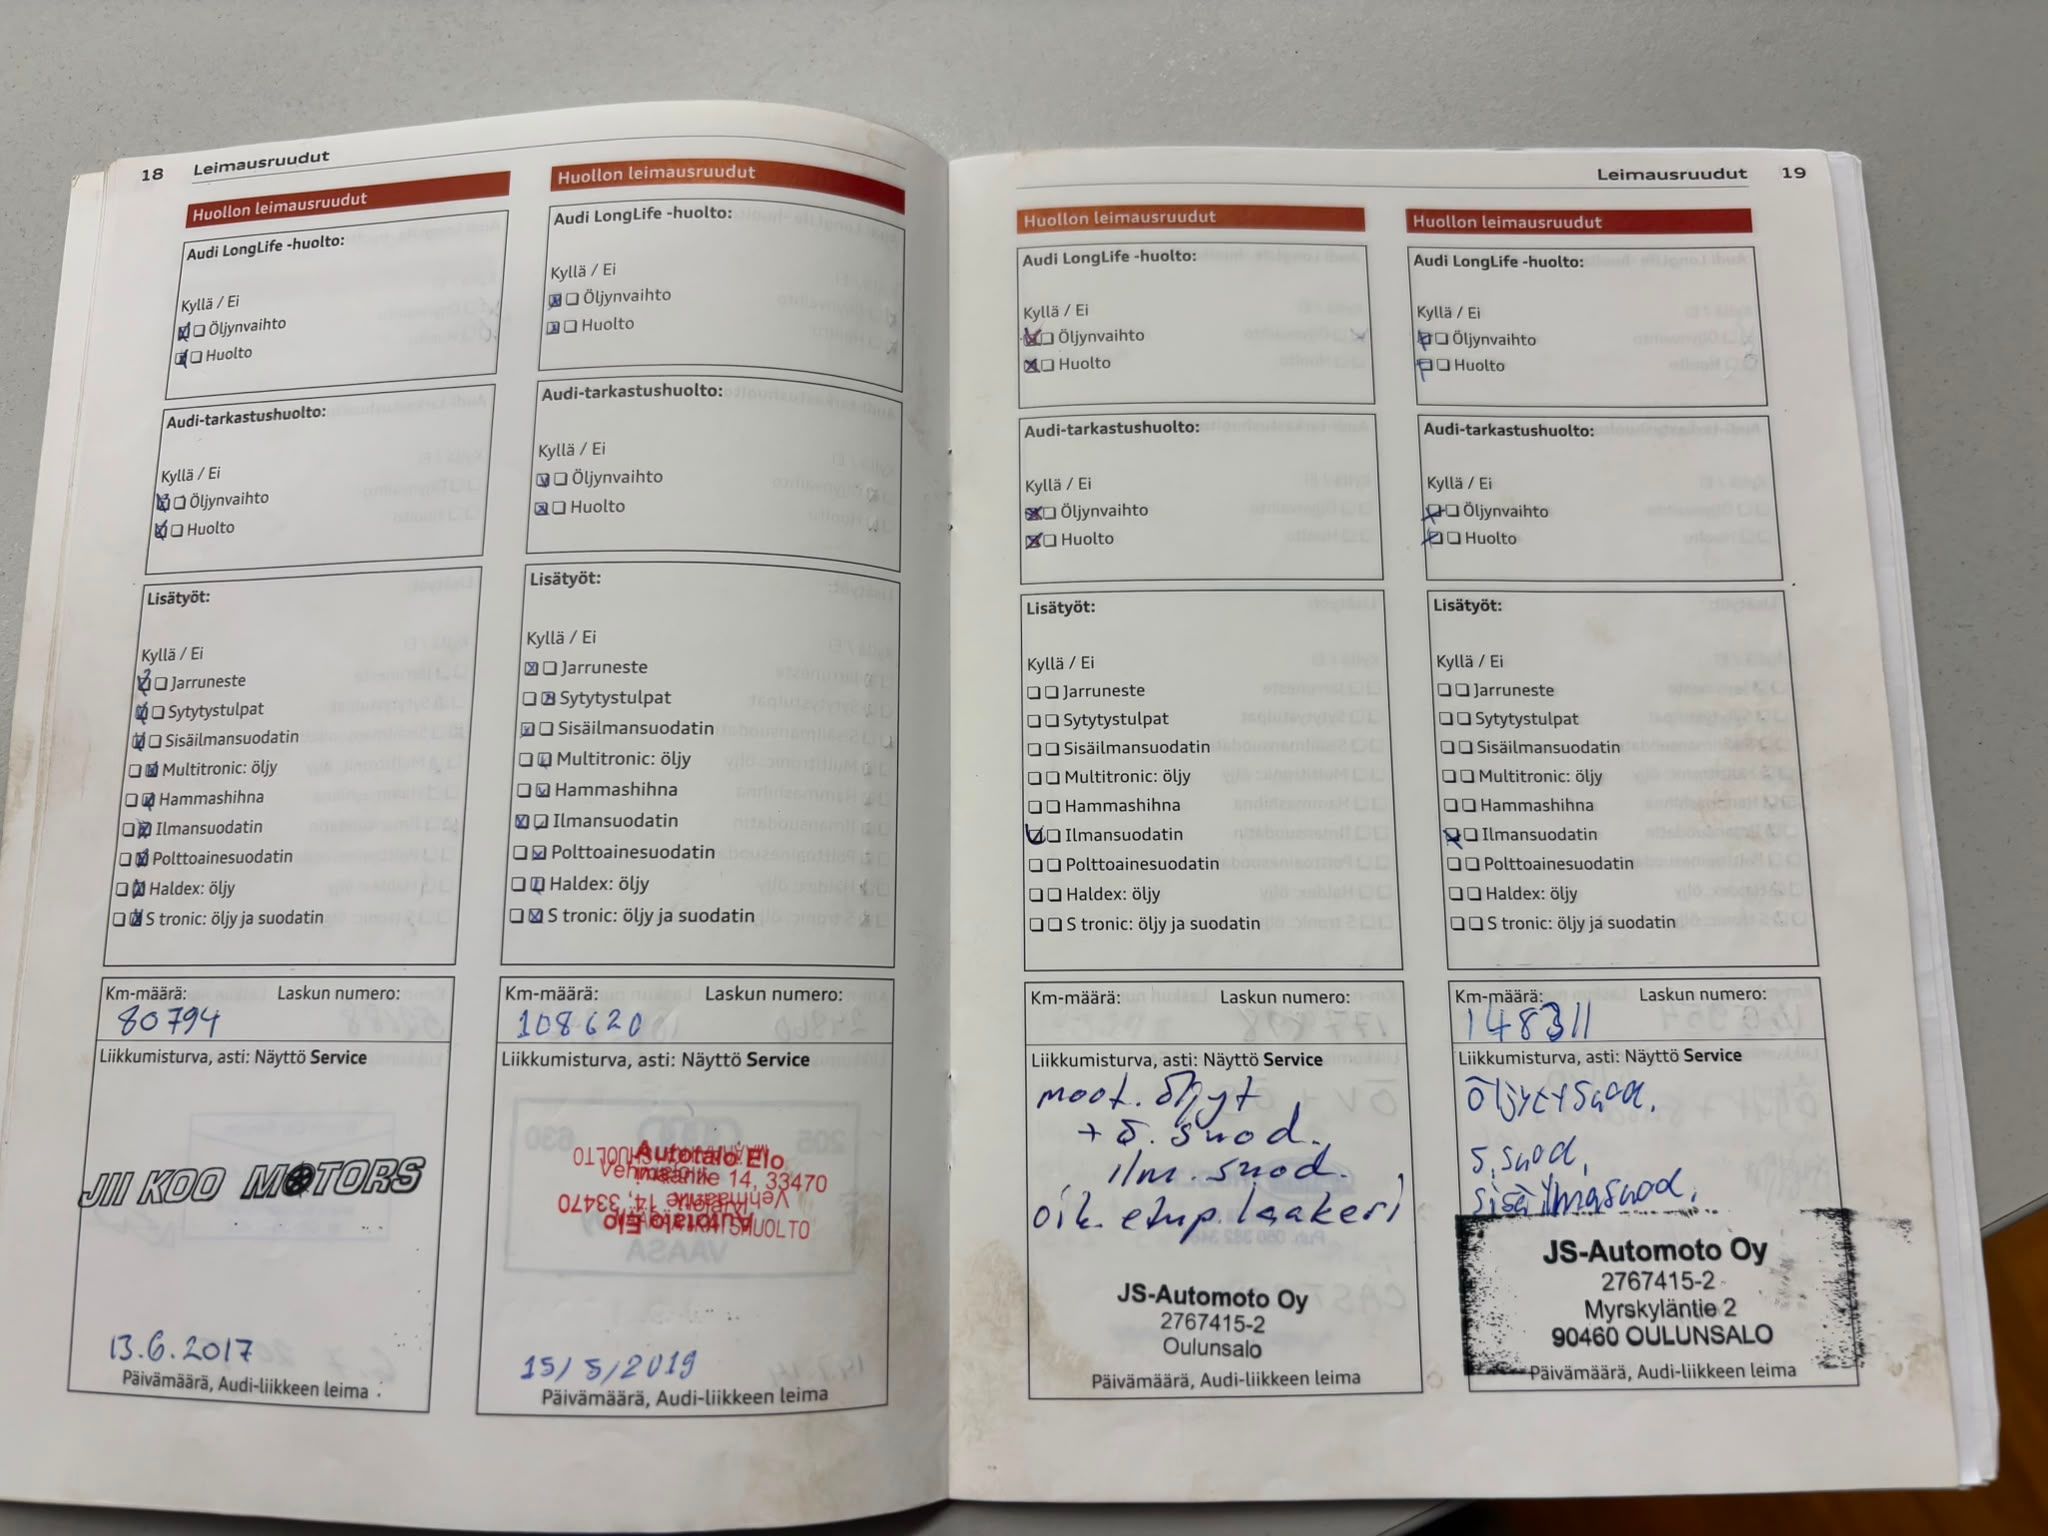 18 Leimausruudut
Huollon leimausruudut
Audi LongLife -huolto:
Kyllä / Ei
Öljynvaihto
Huolto
Audi-tarkastushuolto:
Kyllä / Ei
Öljynvaihto
Huolto
Lisätyöt:
Kyllä / Ei
Jarruneste
Sytytystulpat
Sisäilmansuodatin
Multitronic: öljy
Hammashihna
Ilmansuodatin
Polttoainesuodatin
Haldex: öljy
S tronic: öljy ja suodatin
Km-määrä: Laskun numero:
80794
Liikkumisturva, asti: Näyttö Service
JII KOO MOTORS
13.6.2017
Päivämäärä, Audi-liikkeen leima
Huollon leimausruudut
Audi LongLife -huolto:
Kyllä / Ei
Öljynvaihto
Huolto
Audi-tarkastushuolto:
Kyllä / Ei
Öljynvaihto
Huolto
Lisätyöt:
Kyllä / Ei
Jarruneste
Sytytystulpat
Sisäilmansuodatin
Multitronic: öljy
Hammashihna
Ilmansuodatin
Polttoainesuodatin
Haldex: öljy
S tronic: öljy ja suodatin
Km-määrä: Laskun numero:
108620
Liikkumisturva, asti: Näyttö Service
Autotalo Elo
14, 33470
15/5/2019
Päivämäärä, Audi-liikkeen leima
Leimausruudut 19
Huollon leimausruudut
Audi LongLife -huolto:
Kyllä / Ei
Öljynvaihto
Huolto
Audi-tarkastushuolto:
Kyllä / Ei
Öljynvaihto
Huolto
Lisätyöt:
Kyllä / Ei
Jarruneste
Sytytystulpat
Sisäilmansuodatin
Multitronic: öljy
Hammashihna
Ilmansuodatin
Polttoainesuodatin
Haldex: öljy
S tronic: öljy ja suodatin
Km-määrä: Laskun numero:
Liikkumisturva, asti: Näyttö Service
moot. öljyt
+ ö. suod.
ilm. suod.
oik. etup. laakeri
JS-Automoto Oy
2767415-2
Oulunsalo
Päivämäärä, Audi-liikkeen leima
Huollon leimausruudut
Audi LongLife -huolto:
Kyllä / Ei
Öljynvaihto
Huolto
Audi-tarkastushuolto:
Kyllä / Ei
Öljynvaihto
Huolto
Lisätyöt:
Kyllä / Ei
Jarruneste
Sytytystulpat
Sisäilmansuodatin
Multitronic: öljy
Hammashihna
Ilmansuodatin
Polttoainesuodatin
Haldex: öljy
S tronic: öljy ja suodatin
Km-määrä: Laskun numero:
148311
Liikkumisturva, asti: Näyttö Service
öljyt+suod.
s. suod.
sisäilmasuod.
JS-Automoto Oy
2767415-2
Myrskyläntie 2
90460 OULUNSALO
Päivämäärä, Audi-liikkeen leima